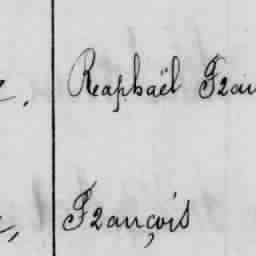 Reaphaël Fran
François